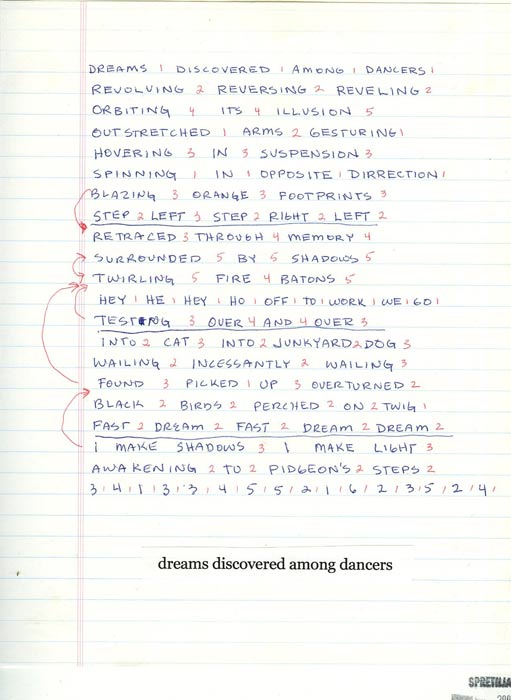 DREAMS 1 DISCOVERED 1 AMONG 1 DANCERS 1
REVOLVING 2 REVERSING 2 REVELING 2
ORBITING 4 ITS 4 ILLUSION 5
OUTSTRETCHED 1 ARMS 2 GESTURING 1
HOVERING 3 IN 3 SUSPENSION 3
SPINNING 1 IN 1 OPPOSITE 1 DIRRECTION 1
BLAZING 3 ORANGE 3 FOOTPRINTS 3
STEP 2 LEFT 3 STEP 2 RIGHT 2 LEFT 2
RETRACED 3 THROUGH 4 MEMORY 4
SURROUNDED 5 BY 5 SHADOWS 5
TWIRLING 5 FIRE 4 BATONS 5
HEY 1 HE 1 HEY 1 HO 1 OFF 1 TO 1 WORK 1 WE 1 GO 1
TESTING 3 OVER 4 AND 4 OVER 3
INTO 2 CAT 3 INTO 2 JUNKYARD 2 DOG 3
WAILING 2 INCESSANTLY 2 WAILING 3
FOUND 3 PICKED 1 UP 3 OVERTURNED 2
BLACK 2 BIRDS 2 PERCHED 2 ON 2 TWIG 1
FAST 2 DREAM 2 FAST 2 DREAM 2 DREAM 2
I MAKE SHADOWS 3 I MAKE LIGHT 3
AWAKENING 2 TO 2 PIDGEON'S 2 STEPS 2
3 1 4 1 1 1 3 1 3 1 4 1 5 1 5 1 2 1 1 1 6 1 2 1 3 1 5 1 2 1 4 1
dreams discovered among dancers